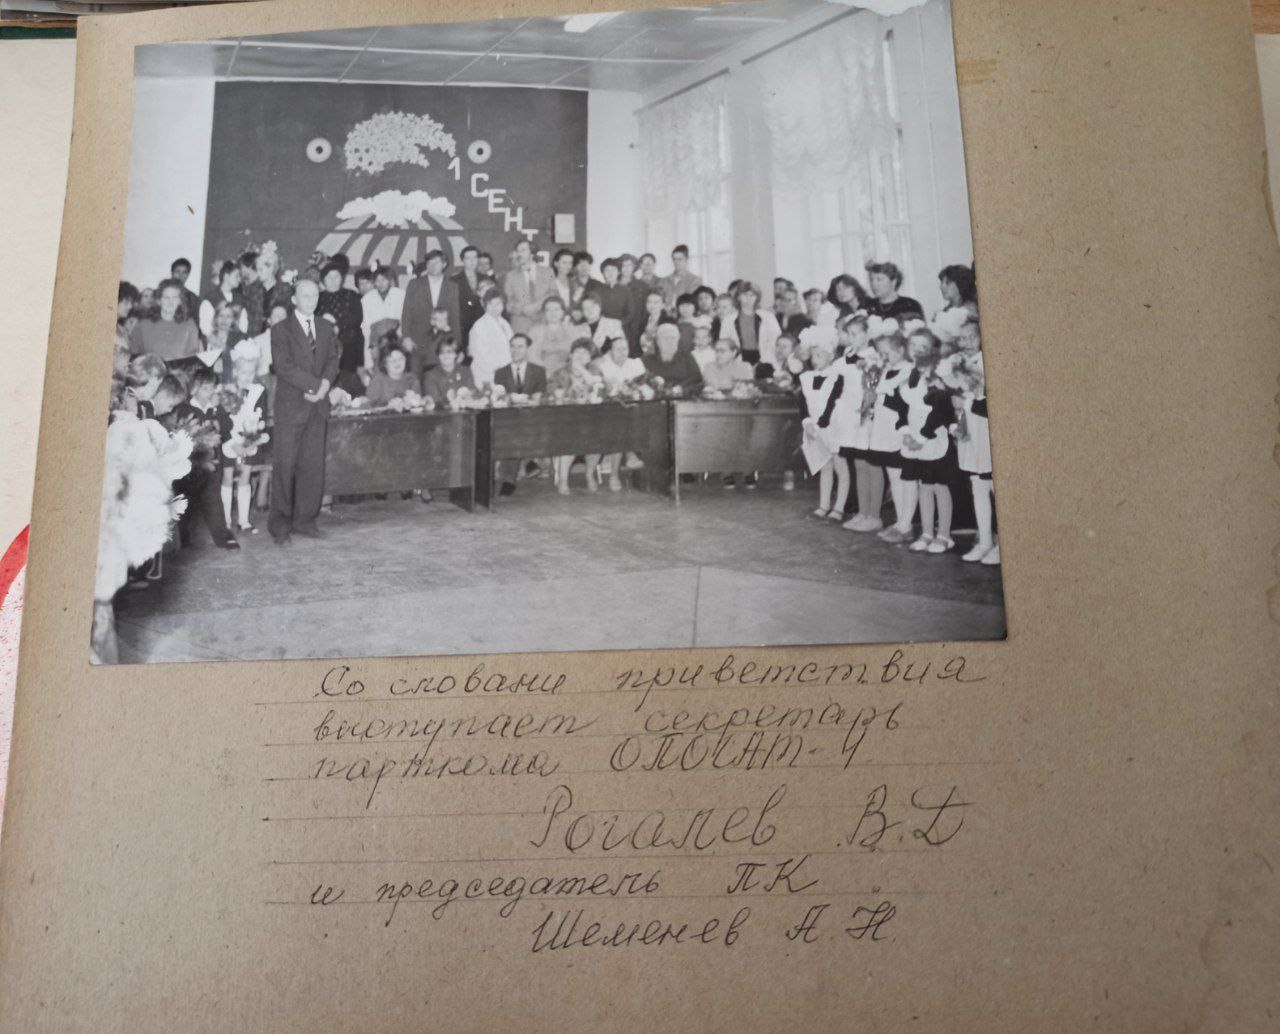 1 СЕНТЯ
Со словами приветствия
выступает секретарь
парткома ОПОГАТ-1
Рогалев В.Д
и председатель ПК
Шеменев А.Н.